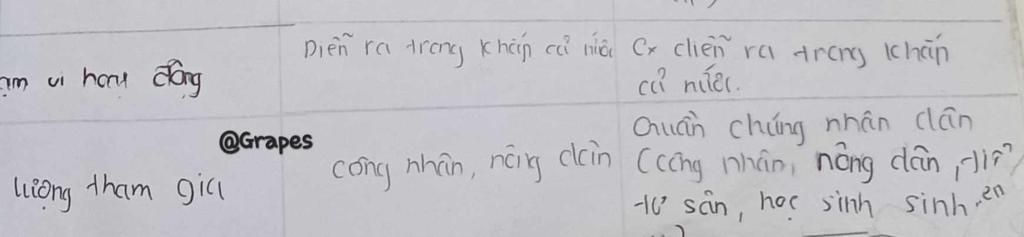 Diễn ra trong khắp cả nước
Cx diễn ra trong khắp
cả nước.
ạm vi hoạt động
@Grapes
Quần chúng nhân dân
công nhân, nông dân
(công nhân, nông dân, tiểu
tư sản, học sinh sinh viên
lượng tham gia